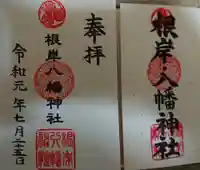 奉拝
根岸八幡神社
令和元年七月二十五日
根岸八幡神社